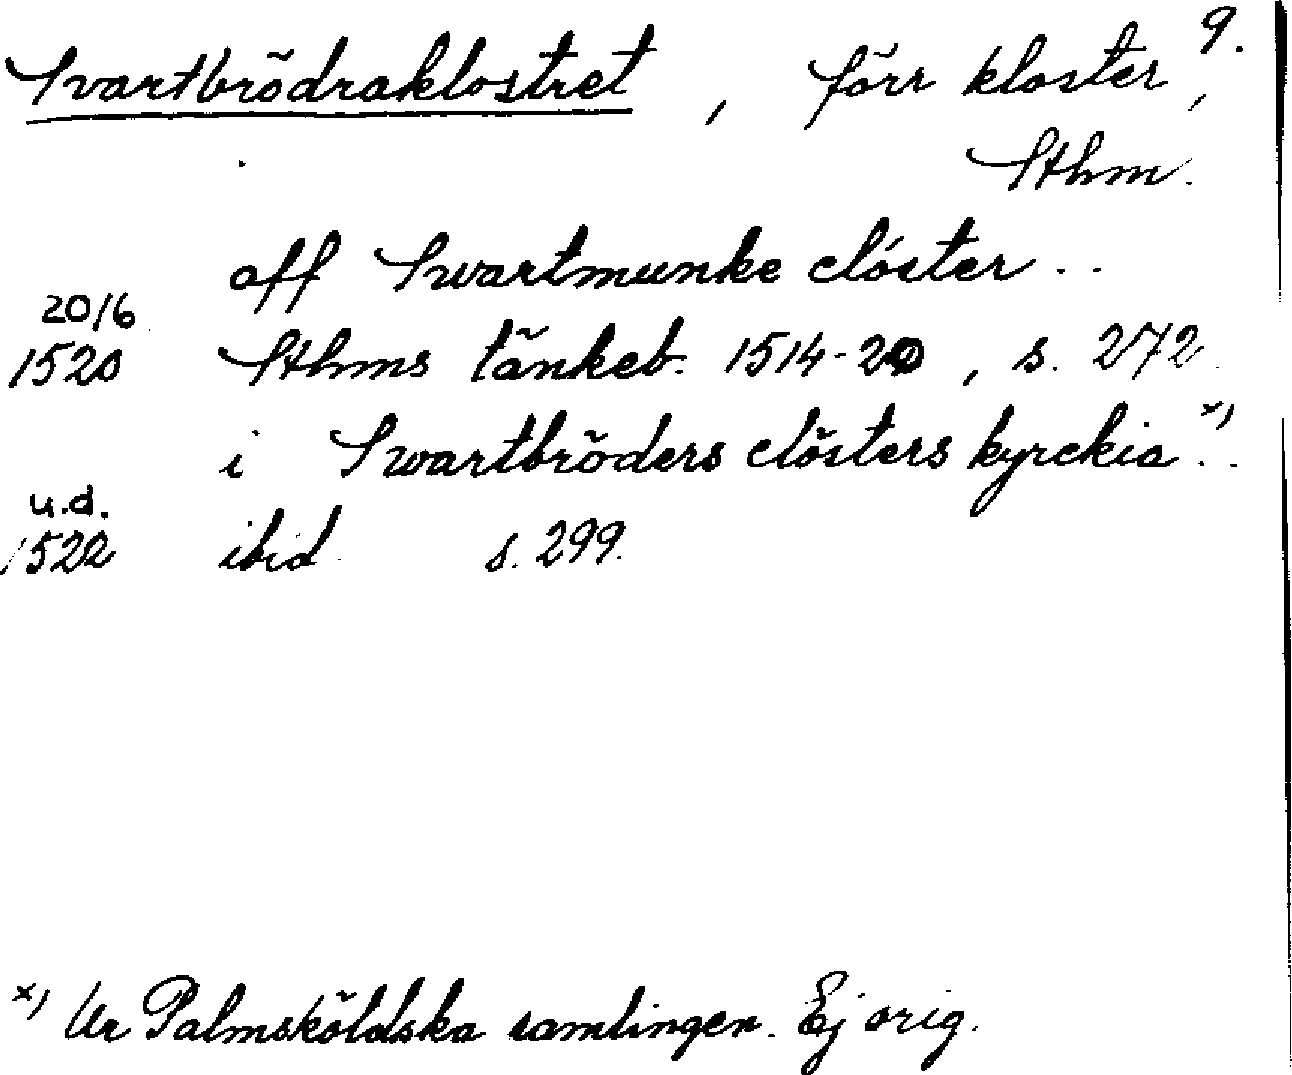 9.
Svartbrödraklostret, förr kloster,
Sthm.
aff Swartmunke clóster ..
20/6
1520 Sthms tänkeb. 1514-20, s. 272.
i Swartbröders clösters kyrckia x) ..
u.d.
1522 ibid s. 299.
x) Ur Palmsköldska samlingen. Ej orig.